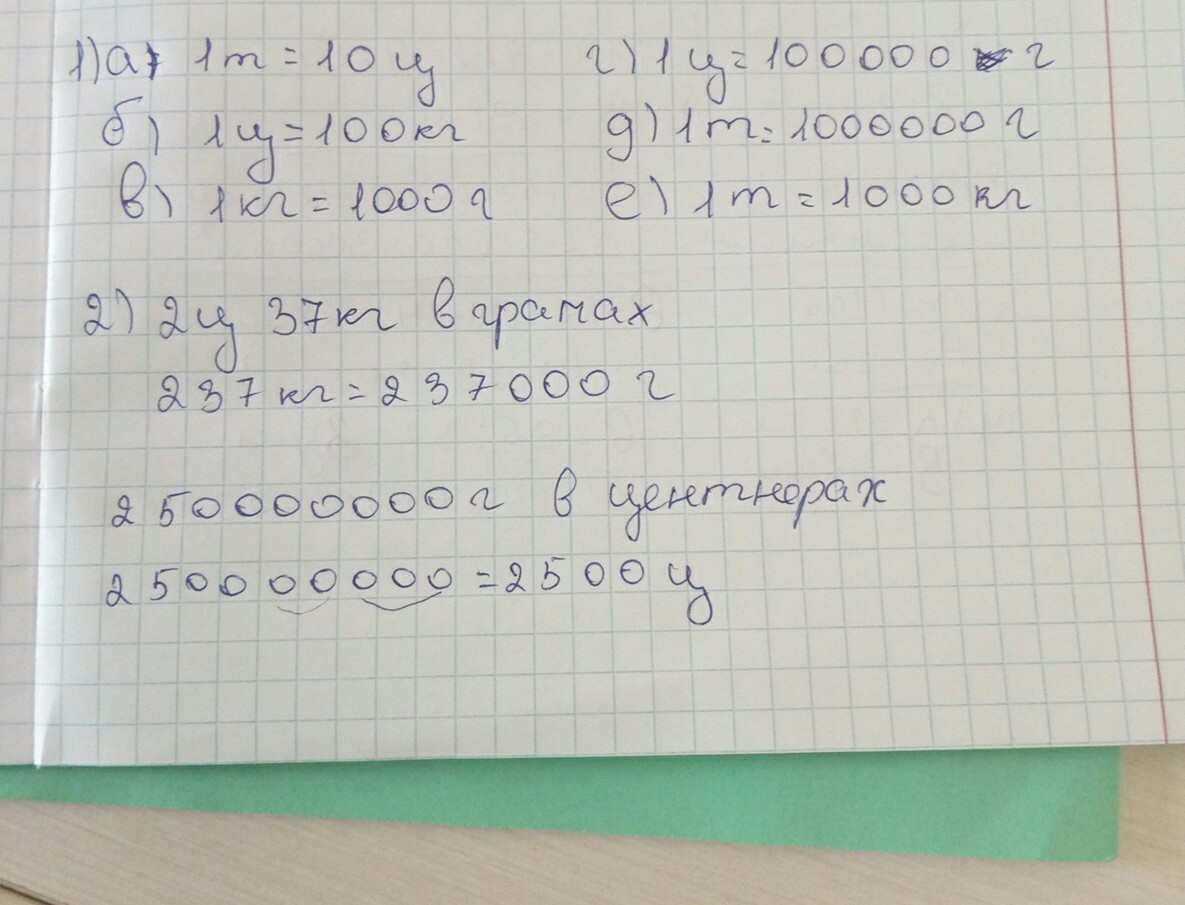 1) а) 1т = 10 ц г) 1 ц = 100000 г
б) 1ц = 100кг д) 1т = 1000000 г
в) 1кг = 1000 г е) 1т = 1000 кг
2) 2ц 37кг в грамах
237кг = 237000 г
250000000г в центнерах
250000000 = 2500 ц